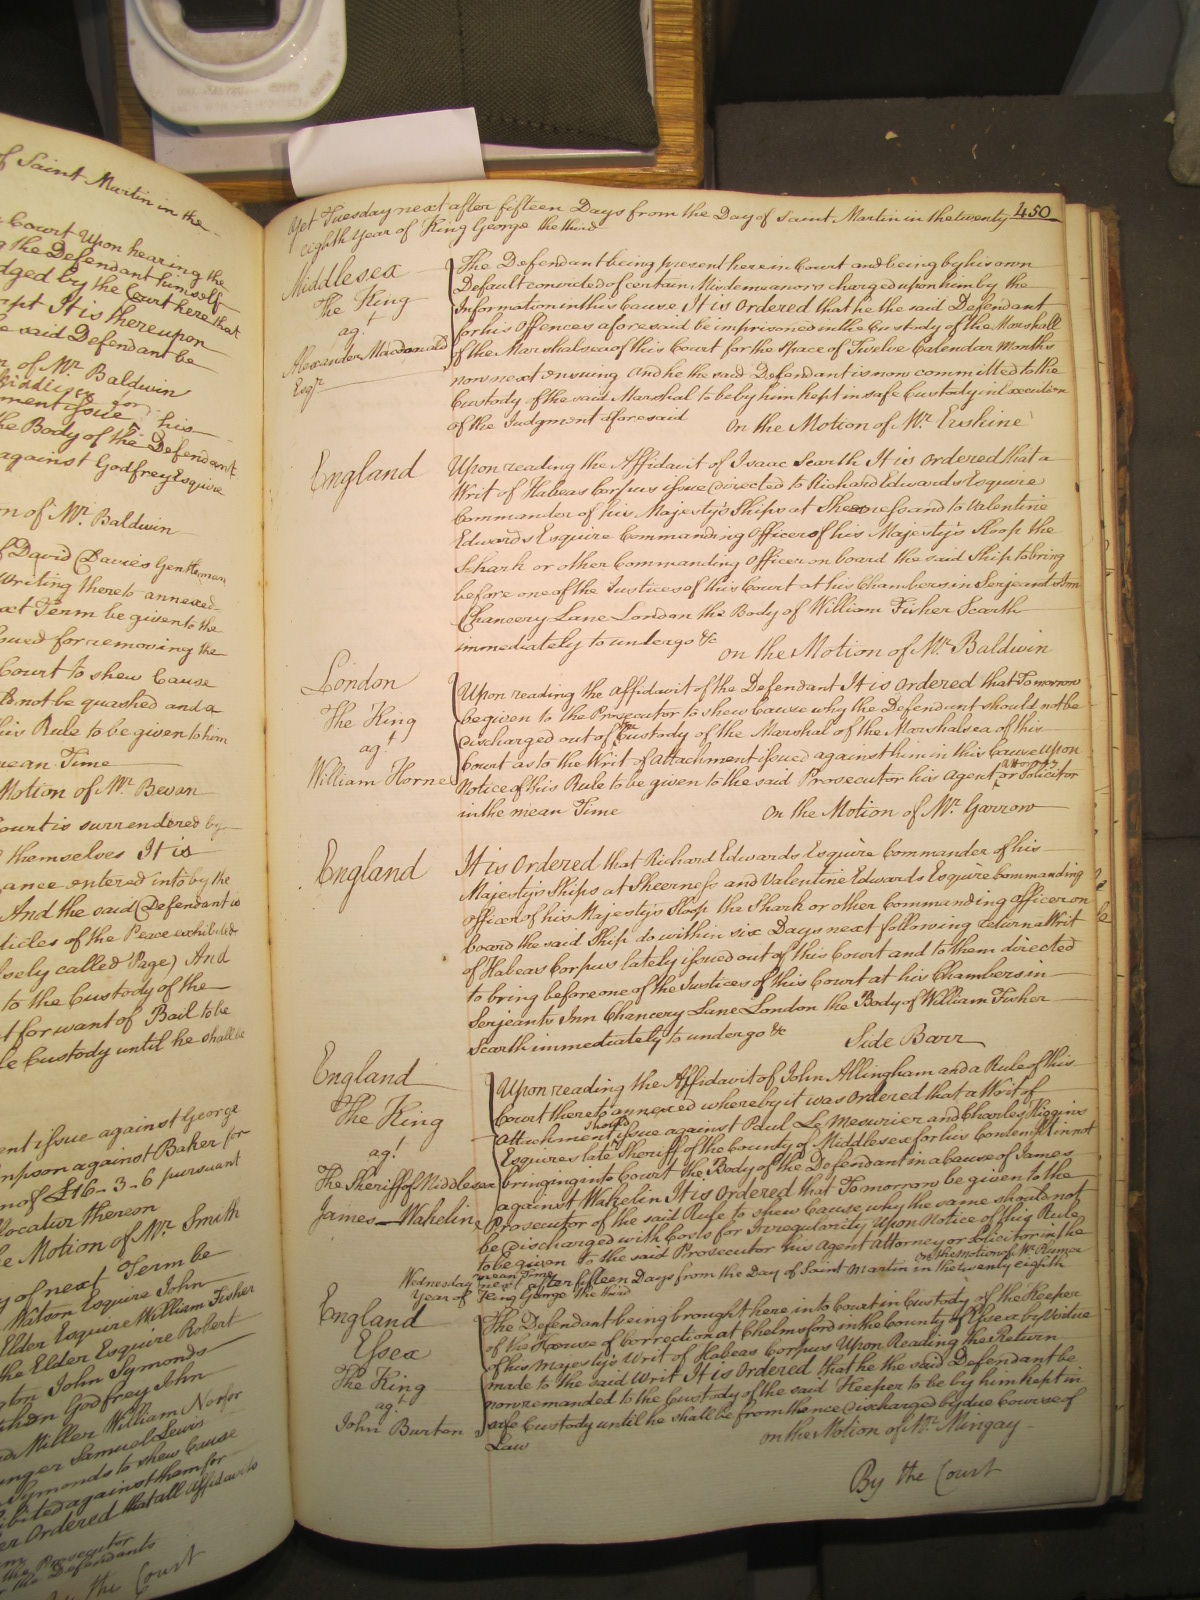 of Saint Martin in the
Court Upon hearing the
the Defendant himself
dged by the Court here that
It is thereupon
said Defendant be
of Mr. Baldwin
ment issue for his
the Body of the Defendant
against Godfrey Esquire
on of Mr. Baldwin
David Davies Gentleman
writing thereto annexed
Term be given to the
ssued for removing the
Court to shew Cause
not be quashed and a
his Rule to be given to him
mean Time
Motion of Mr. Bevan
Court is surrendered by
themselves It is
ance entered into by the
And the said Defendant is
ticles of the Peace exhibited
sely called Page) And
to the Custody of the
t for want of Bail to be
le Custody until he shall be
ent issue against George
mpson against Baker for
m of £16-3-6 pursuant
llocatur thereon
e Motion of Mr. Smith
y of next Term be
Watson Esquire John
Elder Esquire William Fisher
the Elder Esquire Robert
gton John Symonds
Godfrey John
Miller William Nor for
nger Samuel Lewis
Symonds to shew Cause
ibited against them for
er Ordered that all Affidavits
the Prosecutor
the Defendants
the Court
450
Yet Tuesday next after fifteen Days from the Day of Saint Martin in the twenty
eighth Year of King George the third
Middlesex
The King
agt.
Alexander Macdonald
Esqr.
The Defendant being present here in Court and being by his own
Default convicted of certain Misdemeanors charged upon him by the
Information in this Cause It is Ordered that he the said Defendant
for his Offences aforesaid be imprisoned in the Custody of the Marshall
of the Marshalsea of this Court for the Space of Twelve Calendar Months
now next ensuing And he the said Defendant is now committed to the
Custody of the said Marshal to be by him kept in safe Custody in Execution
of the Judgment aforesaid On the Motion of Mr. Erskine
England
Upon reading the Affidavit of Isaac Scarth It is Ordered that a
Writ of Habeas Corpus issue directed to Richard Edwards Esquire
Commander of his Majesty's Ships at Sheerness and to Valentine
Edwards Esquire Commanding Officer of his Majesty's Sloop the
Shark or other Commanding Officer on board the said Ship to bring
before one of the Justices of this Court at his Chambers in Serjeants Inn
Chancery Lane London the Body of William Fisher Scarth
immediately to undergo &c On the Motion of Mr. Baldwin
London
The King
agt.
William Horne
Upon reading the Affidavit of the Defendant It is Ordered that Tomorrow
be given to the Prosecutor to shew Cause why the Defendant should not be
discharged out of the Custody of the Marshal of the Marshalsea of this
Court as to the Writ of Attachment issued against him in this Cause Upon
Notice of this Rule to be given to the said Prosecutor his Agent Attorney or Solicitor
in the mean Time On the Motion of Mr. Garrow
England
It is Ordered that Richard Edwards Esquire Commander of his
Majesty's Ships at Sheerness and Valentine Edwards Esquire Commanding
officer of his Majesty's Sloop the Shark or other Commanding officer on
board the said Ship do within six Days next following return a Writ
of Habeas Corpus lately issued out of this Court and to them directed
to bring before one of the Justices of this Court at his Chambers in
Serjeants Inn Chancery Lane London the Body of William Fisher
Scarth immediately to undergo &c Side Barr
England
The King
agt.
The Sheriff of Middlesex
James Wakelin
Upon reading the Affidavit of John Allingham and a Rule of this
Court thereto annexed whereby it was Ordered that a Writ of
Attachment should issue against Paul Le Mesurier and Charles Higgins
Esquires late Sheriff of the County of Middlesex for his Contempt in not
bringing into Court the Body of the Defendant in a Cause of James
against Wakelin It is Ordered that Tomorrow be given to the
Prosecutor of the said Rule to shew Cause why the same should not
be discharged with Costs for Irregularity Upon Notice of this Rule
to be given to the said Prosecutor his Agent Attorney or Solicitor in the
mean Time On the Motion of Mr. Plumer
Wednesday next after fifteen Days from the Day of Saint Martin in the twenty eighth
Year of King George the third
England
Essex
The King
agt.
John Burton
The Defendant being brought here into Court in Custody of the Keeper
of the House of Correction at Chelmsford in the County of Essex by Virtue
of his Majesty's Writ of Habeas Corpus Upon Reading the Return
made to the said Writ It is Ordered that he the said Defendant be
now remanded to the Custody of the said Keeper to be by him kept in
safe Custody until he shall be from thence discharged by due Course of
Law On the Motion of Mr. Mingay
By the Court